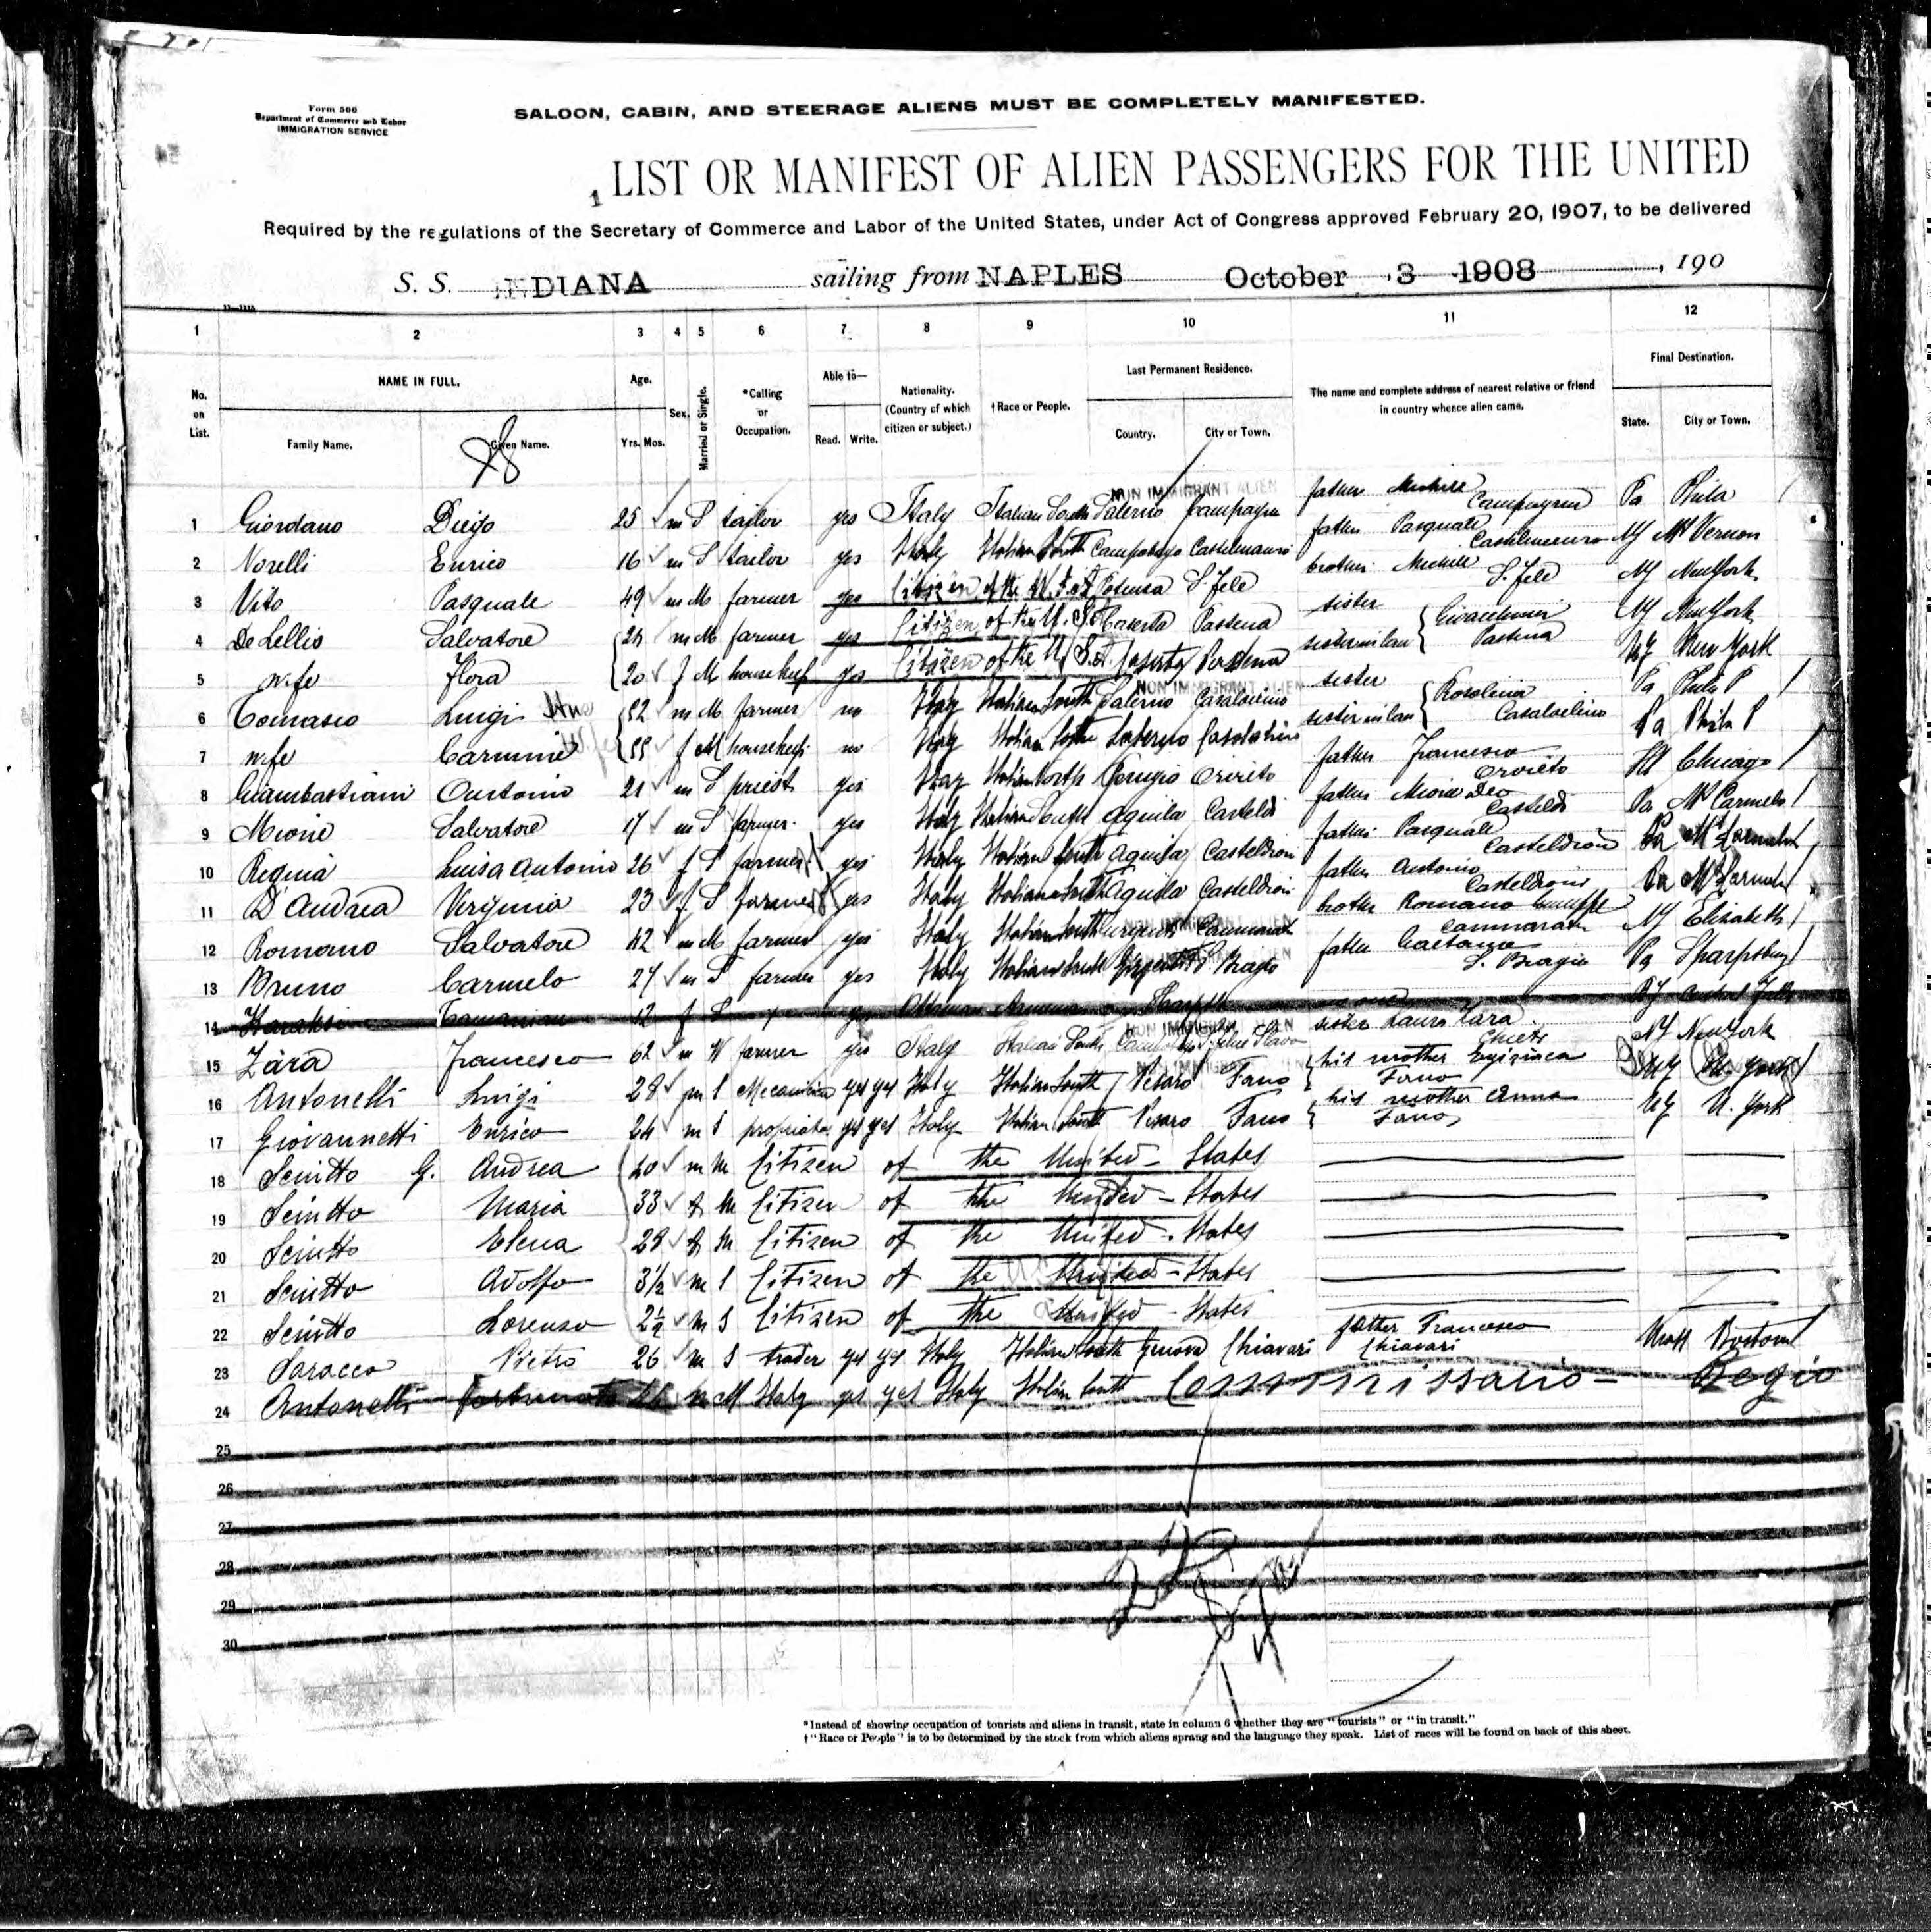 Form 500
Department of Commerce and Labor
IMMIGRATION SERVICE
SALOON, CABIN, AND STEERAGE ALIENS MUST BE COMPLETELY MANIFESTED.
1 LIST OR MANIFEST OF ALIEN PASSENGERS FOR THE UNITED
Required by the regulations of the Secretary of Commerce and Labor of the United States, under Act of Congress approved February 20, 1907, to be delivered
S. S. INDIANA sailing from NAPLES October 3 1908, 190
1 2 3 4 5 6 7 8 9 10 11 12
No. on List.
NAME IN FULL.
Family Name. Given Name.
Age.
Yrs. Mos.
Sex.
Married or Single.
*Calling or Occupation.
Able to—
Read. Write.
Nationality. (Country of which citizen or subject.)
†Race or People.
Last Permanent Residence.
Country. City or Town.
The name and complete address of nearest relative or friend in country whence alien came.
Final Destination.
State. City or Town.
NON IMMIGRANT ALIEN
1 Giordano Diego 25 m S tailor yes Italy Italian South Salerno Campagna father Michele Campagna Pa Phila
2 Norelli Enrico 16 m S tailor yes Italy Italian South Campobasso Castelmauro father Pasquale Castelmauro NY Mt Vernon
3 Vito Pasquale 49 m M farmer yes Citizen of the U.S.A Potensa S. Fele brother Michele S. Fele NY New York
4 De Lellis Salvatore m M farmer yes Citizen of the U.S. Caserta Pastena sister Pastena NY New York
5 wife Flora 20 f M housekeep yes Citizen of the U.S.A. Caserta Pastena sister in law NY New York
NON IMMIGRANT ALIEN
6 Tomasco Luigi 52 m M farmer no Italy Italian South Salerno Casalvelino sister Rosolina Casalvelino Pa Phila P
7 wife Carmine f M housekeep. no Italy Italian South Salerno sister in law Pa Phila P
8 Giambastiani m S priest yes Italy Italian North Perugia Orvieto father Francesco Orvieto Ill Chicago
9 Mione Salvatore 17 m S farmer. yes Italy Italian South Aquila father Casteldi Pa Mt Carmelo
10 Regina Luisa Antonio 26 f S farmer yes Italy Italian South Aquila father Pasquale Pa Mt
11 D'Andrea Virginia 23 f S farmer yes Italy Italian South Aquila father Antonio Pa Mt
12 Romano Salvatore 42 m M farmer yes Italy Italian South brother Romano Giuseppe NJ Elizabeth
13 Bruno Carmelo 27 m S farmer yes Italy Italian South S. Biagio father Gaetano S. Biagio Pa Sharpsburg
14 f S yes
NON IMMIGRANT ALIEN
15 Zara Francesco 62 m W farmer yes Italy Italian South sister Laura Zara Chieti NY New York
16 Antonelli Luigi 28 m S yes yes Italy Italian South Pesaro Fano his mother Fano NY N. York
17 Giovannetti Enrico 24 m S yes yes Italy Italian South Pesaro Fano his mother Anna Fano NY N. York
18 Sciutto G. Andrea 40 m M Citizen of the United-States
19 Sciutto Maria 33 f M Citizen of the United-States
20 Sciutto Elena 28 f M Citizen of the United-States
21 Sciutto Adolfo 3½ m S Citizen of the United-States
22 Sciutto Lorenzo 2½ m S Citizen of the United-States
23 Saracco Pietro 26 m S trader yes yes Italy Italian South Genova Chiavari father Francesco Chiavari Mass Boston
24 Antonelli Fortunato m M Italy yes yes Italy Italian South Commissario- Regio
25
26
27
28
29
30
*Instead of showing occupation of tourists and aliens in transit, state in column 6 whether they are "tourists" or "in transit."
†"Race or People" is to be determined by the stock from which aliens sprang and the language they speak. List of races will be found on back of this sheet.